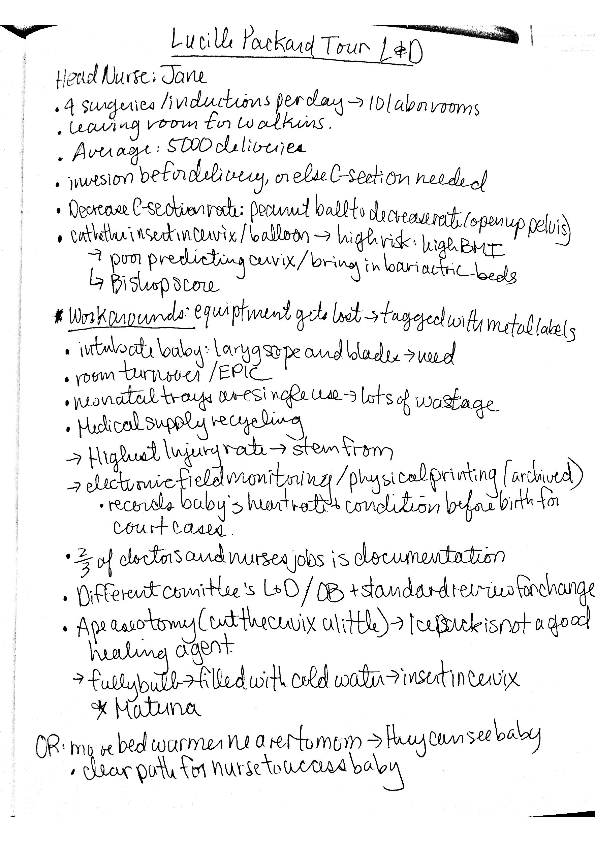 Lucille Packard Tour L&D
Head Nurse: Jane
• 4 surgeries/inductions per day → 10 labor rooms
• leaving room for walkins.
• Average: 5000 deliveries
• invesion befor delivery, or else C-section needed
• Decrease C-section rate: peanut ball to decrease rate (open up pelvis)
• cathther insert in cervix/balloon → high risk: high BMI
→ poor predicting cervix/bring in bariactric beds
↳ Bishop score
* Workarounds: equiptment gets lost → tagged with metal labels
• intubate baby: larygsope and blades → need
• room turnover / EPIC
• neonatal trays are single use → lots of wastage
• Medical supply recycling
→ Highest Injury rate → stem from
→ electronic field monitoring / physical printing (archived)
• records baby's heart rate + condition before birth for
court cases.
• 2/3 of doctors and nurses jobs is documentation
• Different comittee's L&D / OB + standard review for change
• Apeaseotomy (cut the cervix a little) → Ice pack is not a good
healing agent
→ fully bulb → filled with cold water → insert in cervix
* Matuna
OR: move bed warmer nearer to mom → they can see baby
• clear path for nurse to access baby